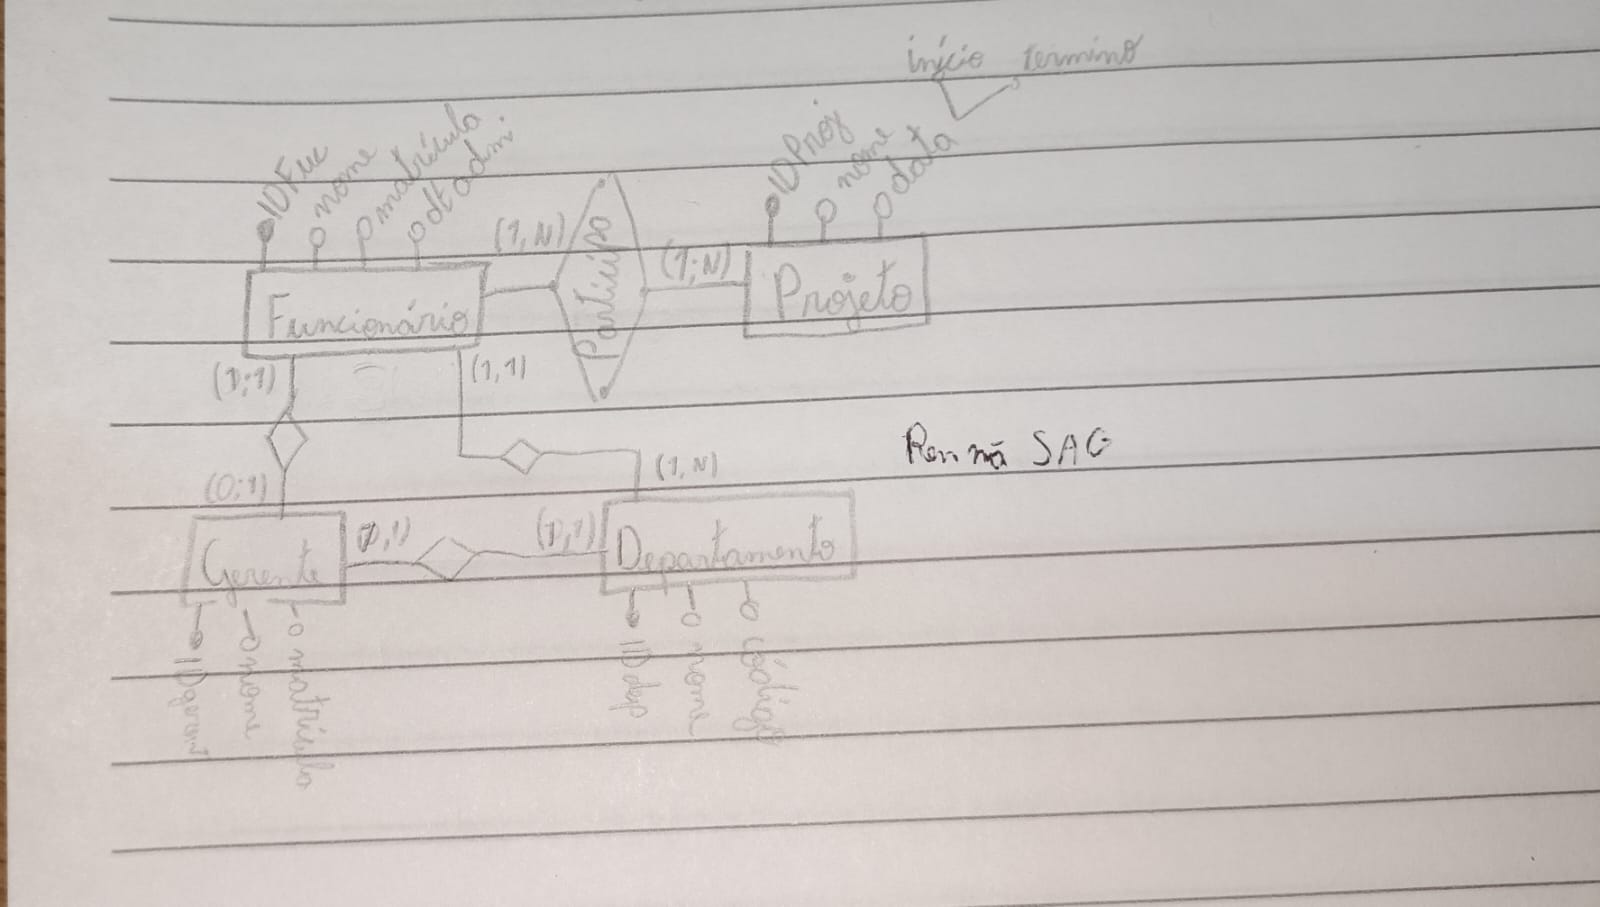 início termino
IDFuc
nome
matrícula
dt adm.
IDProj
nome
data
(1,N)
Participa
(1;N)
Funcionário
Projeto
(1;1)
(1,1)
(0;1)
(1,N)
Gerente
(1,1)
(1,1)
Departamento
nome
matrícula
IDdep
nome
código